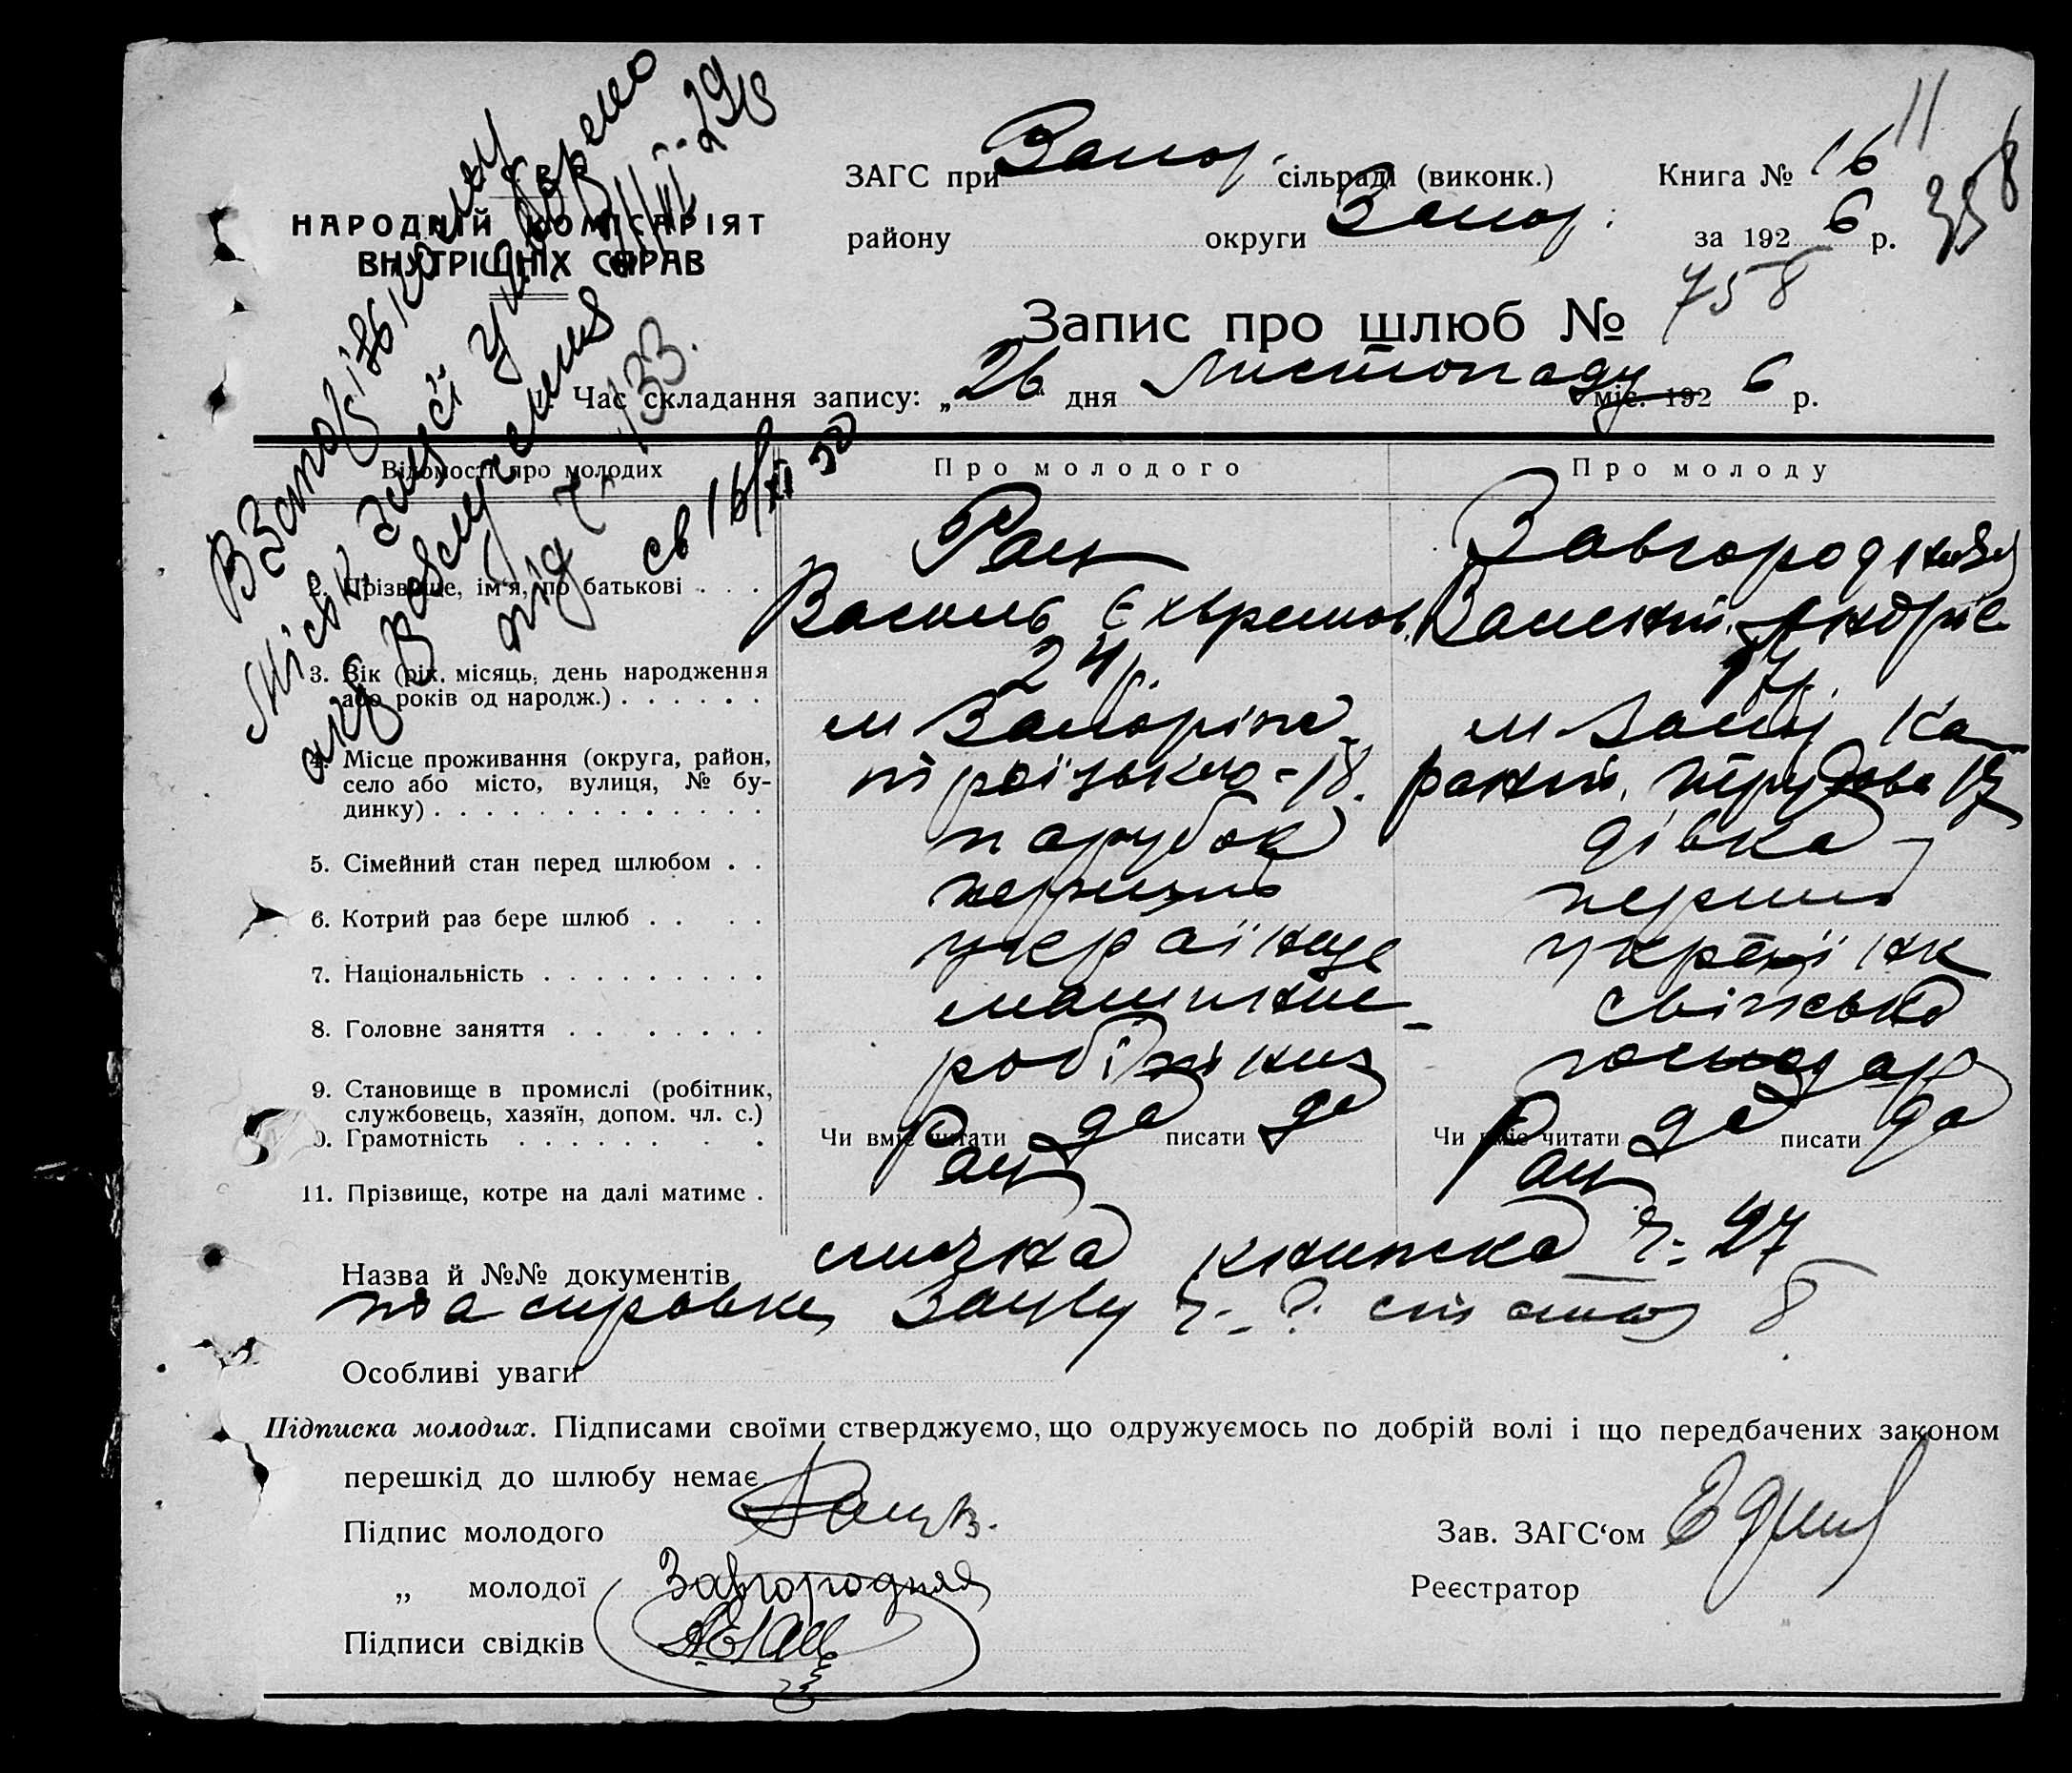 У.С.Р.Р.
НАРОДНІЙ КОМІСАРІЯТ
ВНУТРІШНІХ СПРАВ
ЗАГС при Запор. сільраді (виконк.) Книга № 16
району округи Запор. за 1926 р.
11
358
Запис про шлюб № 758
Час складання запису: „26 дня Листопаду міс. 1926 р.
В Запорізькому
міськ. загсі
під ч. 133.
св 16/XI 30
Відомості про молодих Про молодого Про молоду
2. Прізвище, ім'я, по батькові . . . Рац Завгородняя
Василь Єхремов. Валентин. Андріє
3. Вік (рік, місяць, день народження
або років од народж.) . . . . . . 24 р. 17 р.
4. Місце проживання (округа, район,
село або місто, вулиця, № бу-
динку) . . . . . . . . . . . . . .
м Запоріжа м Запор Ка
троїзька - 18. рантин. Трудова 17
5. Сімейний стан перед шлюбом . . парубок дівка
6. Котрий раз бере шлюб . . . . перший перший
7. Національність . . . . . . . . . українце українк
8. Головне заняття . . . . . . . машине свійське
9. Становище в промислі (робітник,
службовець, хазяїн, допом. чл. с.)
робітник господар
10. Грамотність . . . . . . . . . Чи вміє читати да писати да Чи вміє читати да писати да
11. Прізвище, котре на далі матиме . Рац Рац
Назва й №№ документів лична книжка ч. 27
та справка Загсу ч. ?
Особливі уваги
Підписка молодих. Підписами своїми стверджуємо, що одружуємось по добрій волі і що передбачених законом
перешкід до шлюбу немає.
Підпис молодого Рац В.
Зав. ЗАГС‘ом
„ молодої Завгородняя
Реєстратор
Підписи свідків